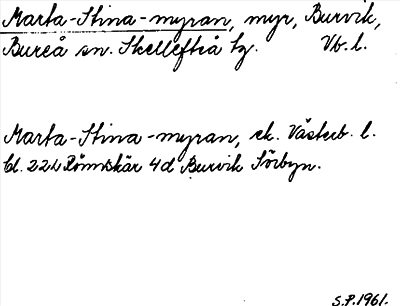 Marta-Stina-myran, myr, Burvik,
Bureå sn. Skellefteå tg. Vb. l.
Marta-Stina-myran, ek. Västerb. l.
bl. 22L Rönnskär 4d Burvik Sörbyn.
S.P. 1961.